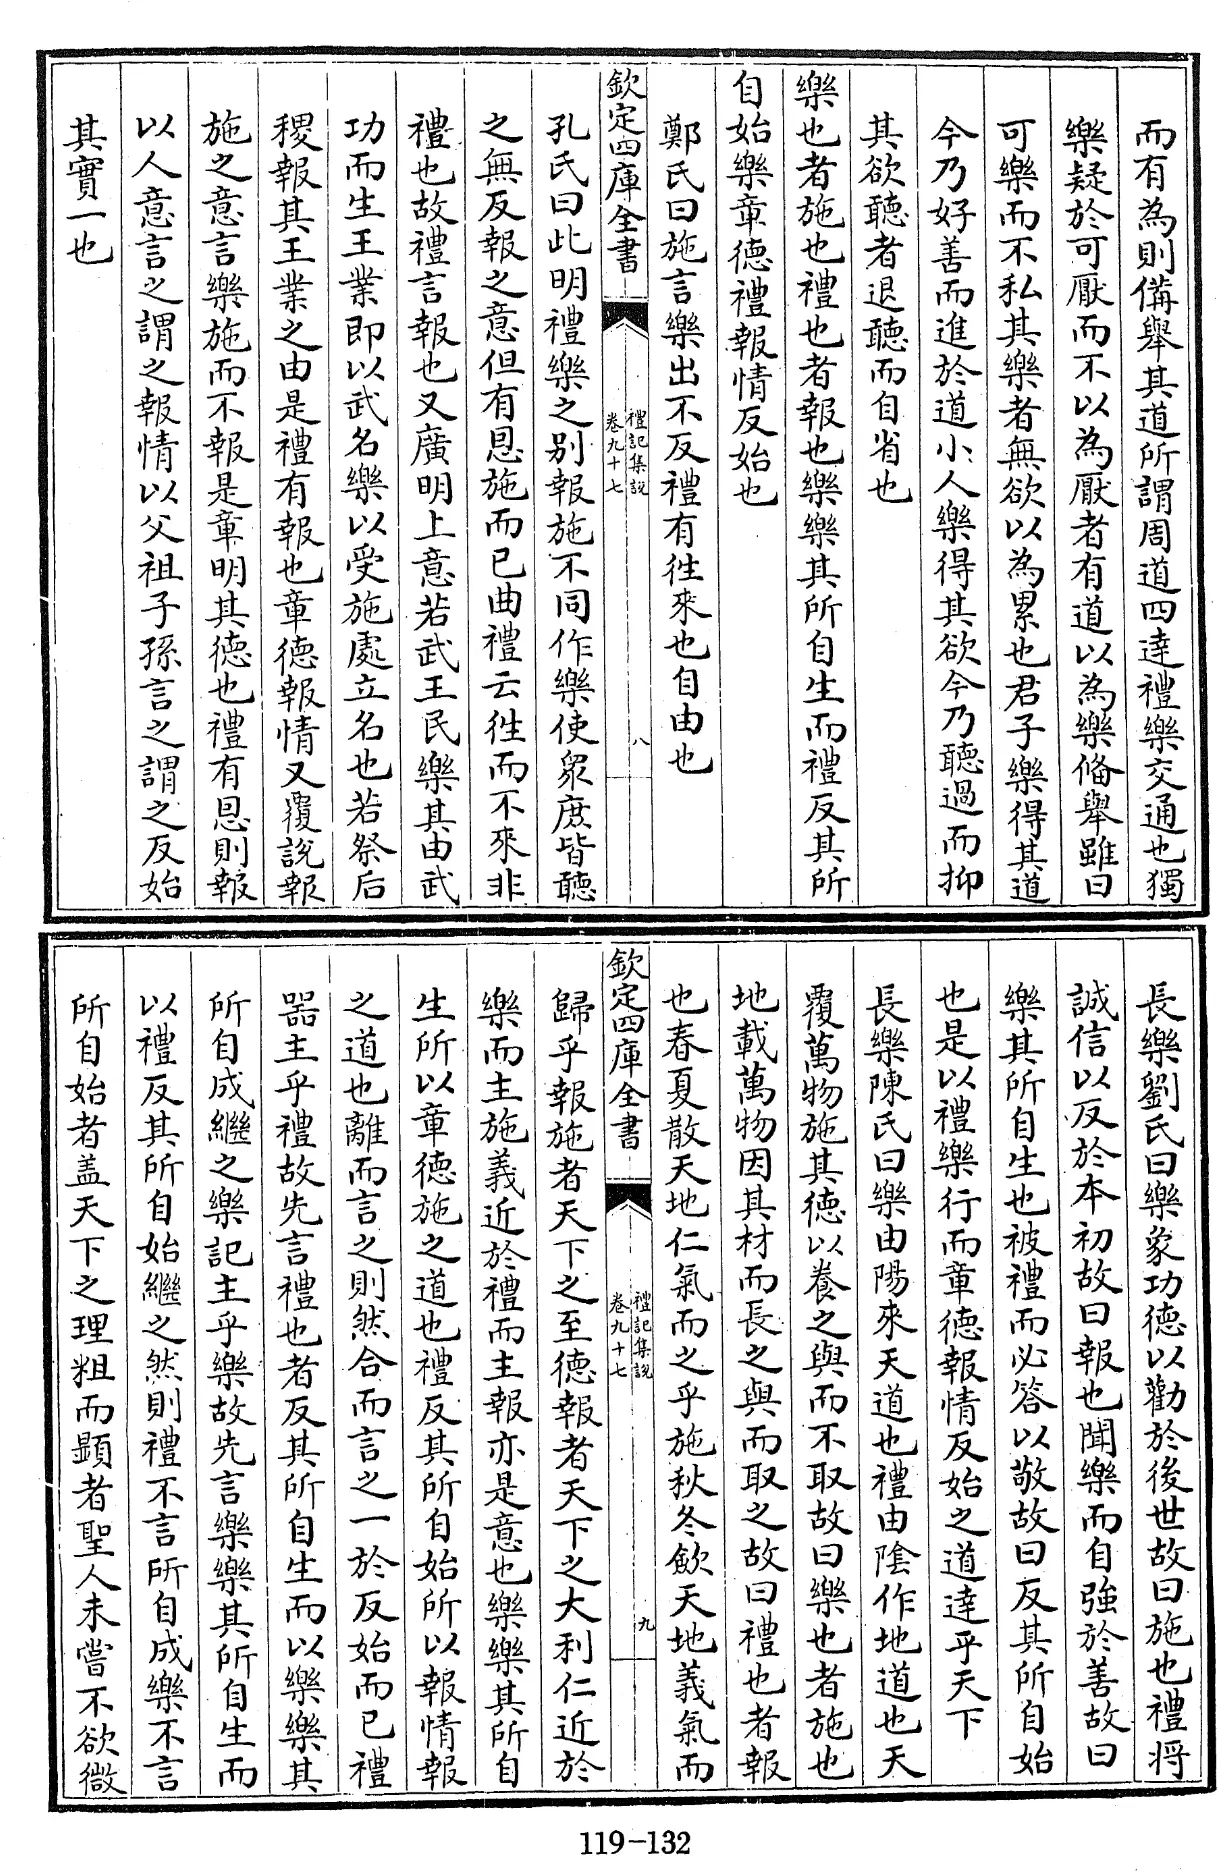 而有為則備舉其道所謂周道四達禮樂交通也獨
樂疑於可厭而不以為厭者有道以為樂脩舉雖曰
可樂而不私其樂者無欲以為累也君子樂得其道
今乃好善而進於道小人樂得其欲今乃聽過而抑
其欲聽者退聽而自省也
樂也者施也禮也者報也樂樂其所自生而禮反其所
自始樂章德禮報情反始也
鄭氏曰施言樂出不反禮有徃來也自由也
欽定四庫全書
禮記集說
卷九十七
八
孔氏曰此明禮樂之别報施不同作樂使衆庶皆聽
之無反報之意但有恩施而已曲禮云徃而不來非
禮也故禮言報也又廣明上意若武王民樂其由武
功而生王業即以武名樂以受施處立名也若祭后
稷報其王業之由是禮有報也章德報情又覆説報
施之意言樂施而不報是章明其德也禮有恩則報
以人意言之謂之報情以父祖子孫言之謂之反始
其實一也
長樂劉氏曰樂象功德以勸於後世故曰施也禮將
誠信以反於本初故曰報也聞樂而自強於善故曰
樂其所自生也被禮而必答以敬故曰反其所自始
也是以禮樂行而章德報情反始之道達乎天下
長樂陳氏曰樂由陽來天道也禮由陰作地道也天
覆萬物施其德以養之與而不取故曰樂也者施也
地載萬物因其材而長之與而取之故曰禮也者報
也春夏散天地仁氣而之乎施秋冬歛天地義氣而
欽定四庫全書
禮記集說
卷九十七
九
歸乎報施者天下之至德報者天下之大利仁近於
樂而主施義近於禮而主報亦是意也樂樂其所自
生所以章德施之道也禮反其所自始所以報情報
之道也離而言之則然合而言之一於反始而已禮
器主乎禮故先言禮也者反其所自生而以樂樂其
所自成繼之樂記主乎樂故先言樂樂其所自生而
以禮反其所自始繼之然則禮不言所自成樂不言
所自始者盖天下之理粗而顯者聖人未嘗不欲微
119-132